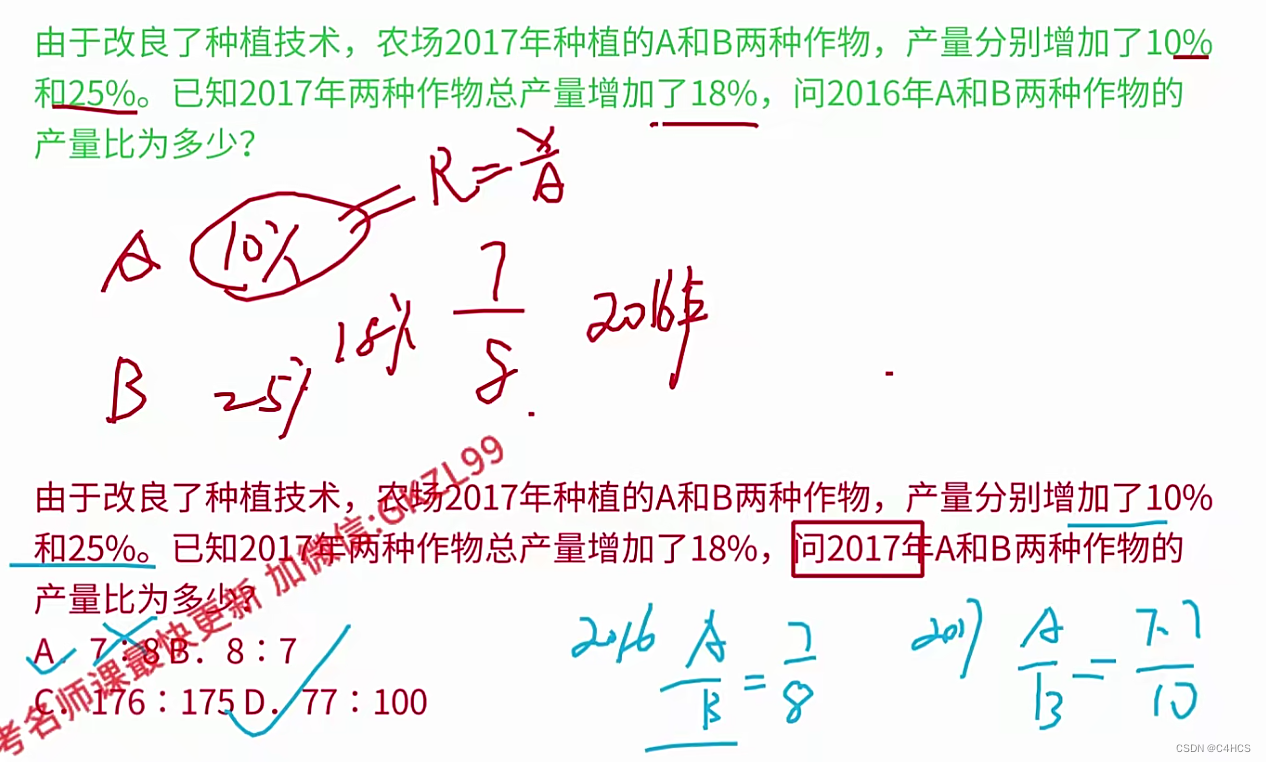 由于改良了种植技术，农场2017年种植的A和B两种作物，产量分别增加了10%
和25%。已知2017年两种作物总产量增加了18%，问2016年A和B两种作物的
产量比为多少？
R=x/A
A 10%
7/8 2016年
18%
B 25%
由于改良了种植技术，农场2017年种植的A和B两种作物，产量分别增加了10%
和25%。已知2017年两种作物总产量增加了18%，问2017年A和B两种作物的
产量比为多少？
A．7：8 B．8：7
C．176：175 D．77：100
2016 A/B=7/8
2017 A/B=7.7/10
考名师课最快更新 加微信:GKZL99
CSDN @C4HCS